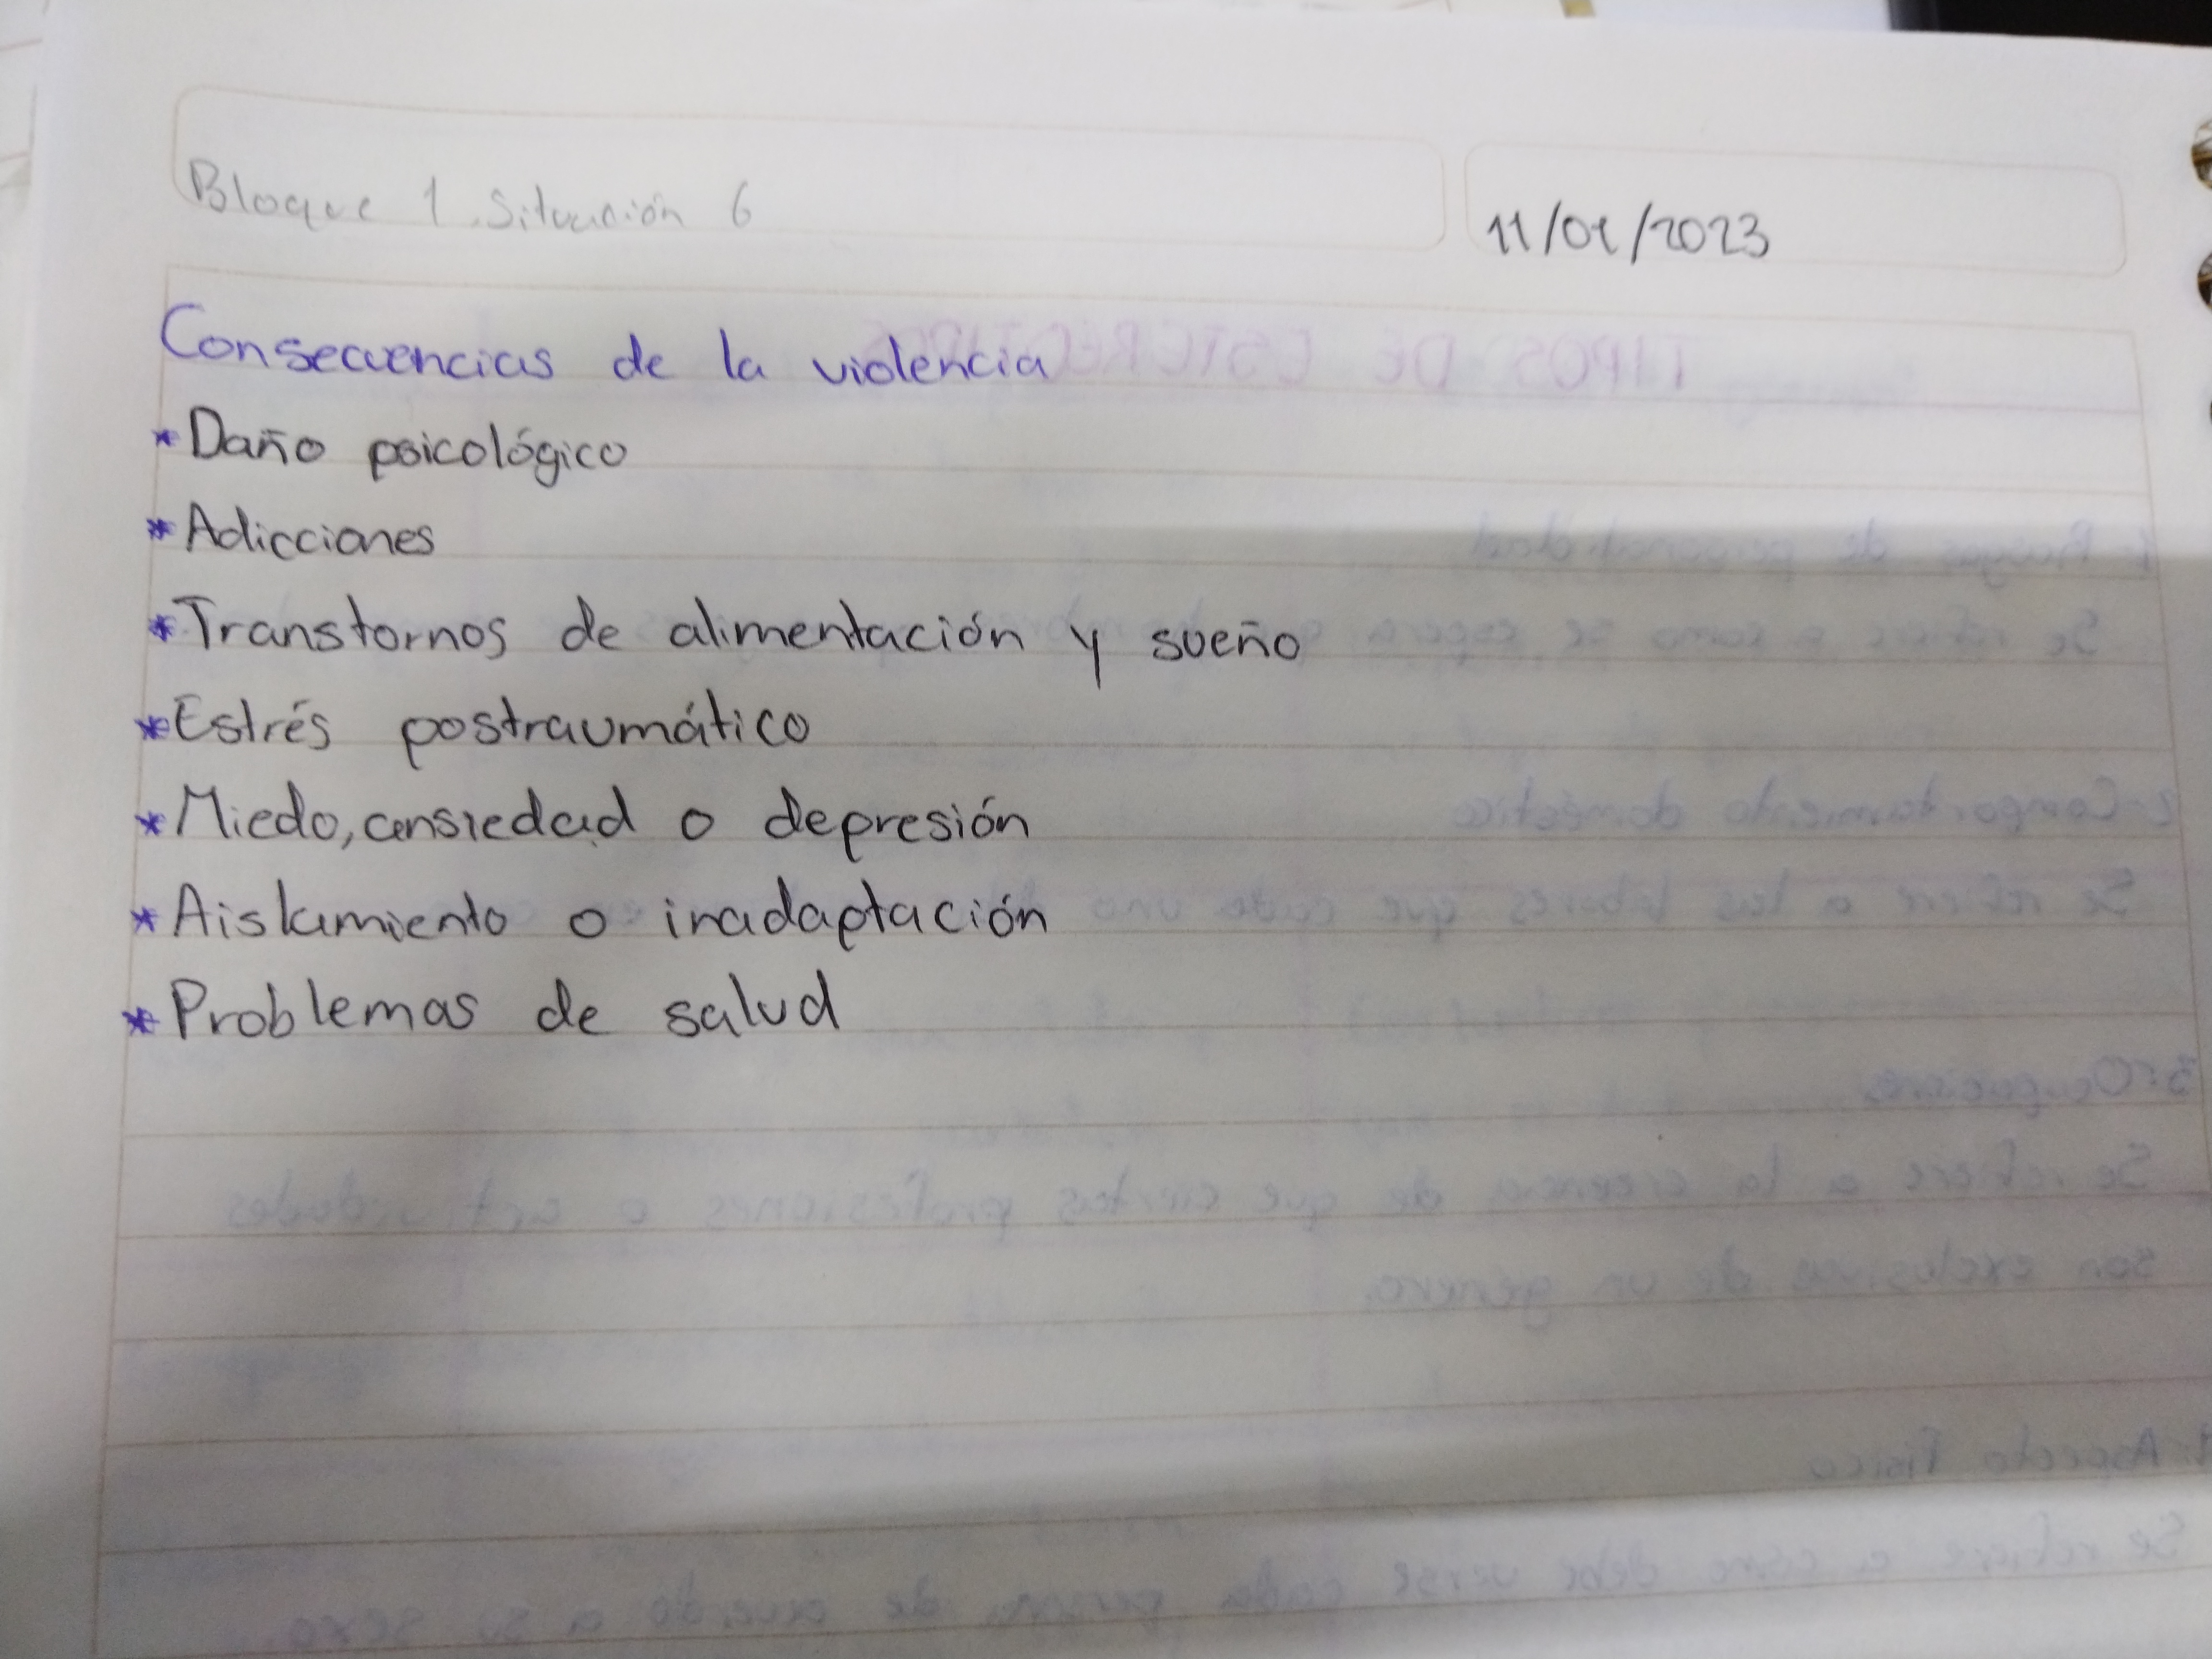 Bloque 1 Situación 6
11/01/2023
Consecuencias de la violencia
* Daño psicológico
* Adicciones
* Transtornos de alimentación y sueño
* Estrés postraumático
* Miedo, ansiedad o depresión
* Aislamiento o inadaptación
* Problemas de salud